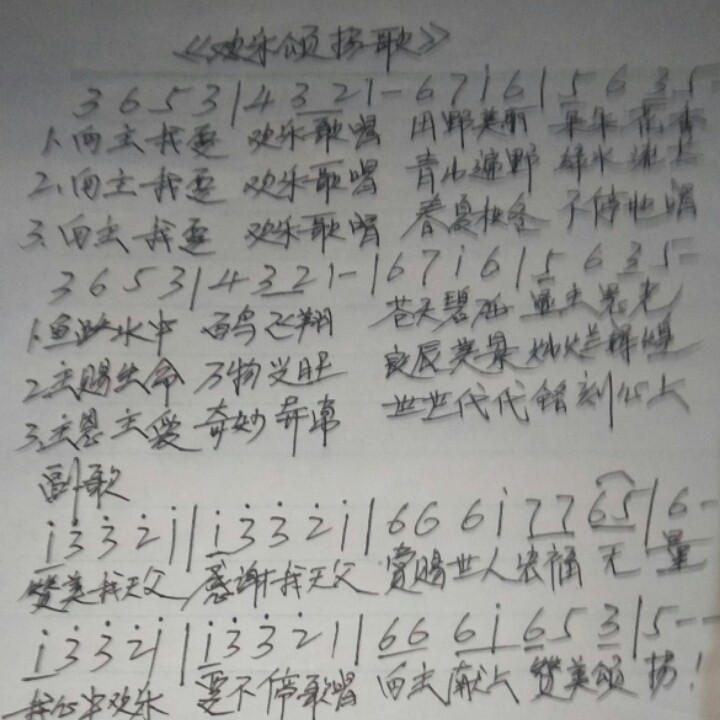 《欢乐颂扬歌》
3 6 5 3 | 4 3 2 1 - 6 7 i 6 | 5 6 3 5 -
1. 向主我要 欢乐歌唱 田野美丽 果木花香
2. 向主我要 欢乐歌唱 青山遍野 绿水
3. 向主我要 欢乐歌唱 春夏秋冬 不停地唱
3 6 5 3 | 4 3 2 1 - | 6 7 i 6 | 5 6 3 5 -
1. 鱼跃水中 百鸟飞翔 苍天碧 显主荣光
2. 主赐生命 万物兴旺 良辰美景 灿烂辉煌
3. 主恩主爱 奇妙异常 世世代代 铭刻心上
副歌
i 3 3 2 i || i 3 3 2 i || 6 6 6 i 7 7 6 5 | 6 -
赞美我天父 感谢我天父 赏赐世人宏福无量
i 3 3 2 i || i 3 3 2 1 || 6 6 6 i 6 5 3 | 5 - -
我心中欢乐 要不停歌唱 向主献上 赞美颂扬!